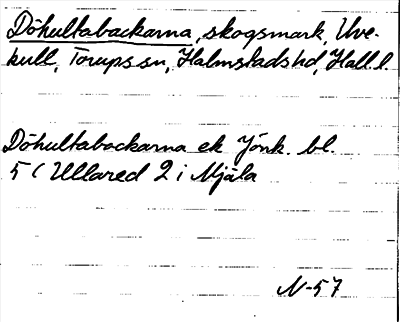 Döhultabackarna, skogsmark, Uve-
kull, Torups sn, Halmstads hd, Hall. l.
Döhultabackarna ek Jönk. bl.
5 ( Ullared 2 i Mjäla
N-57